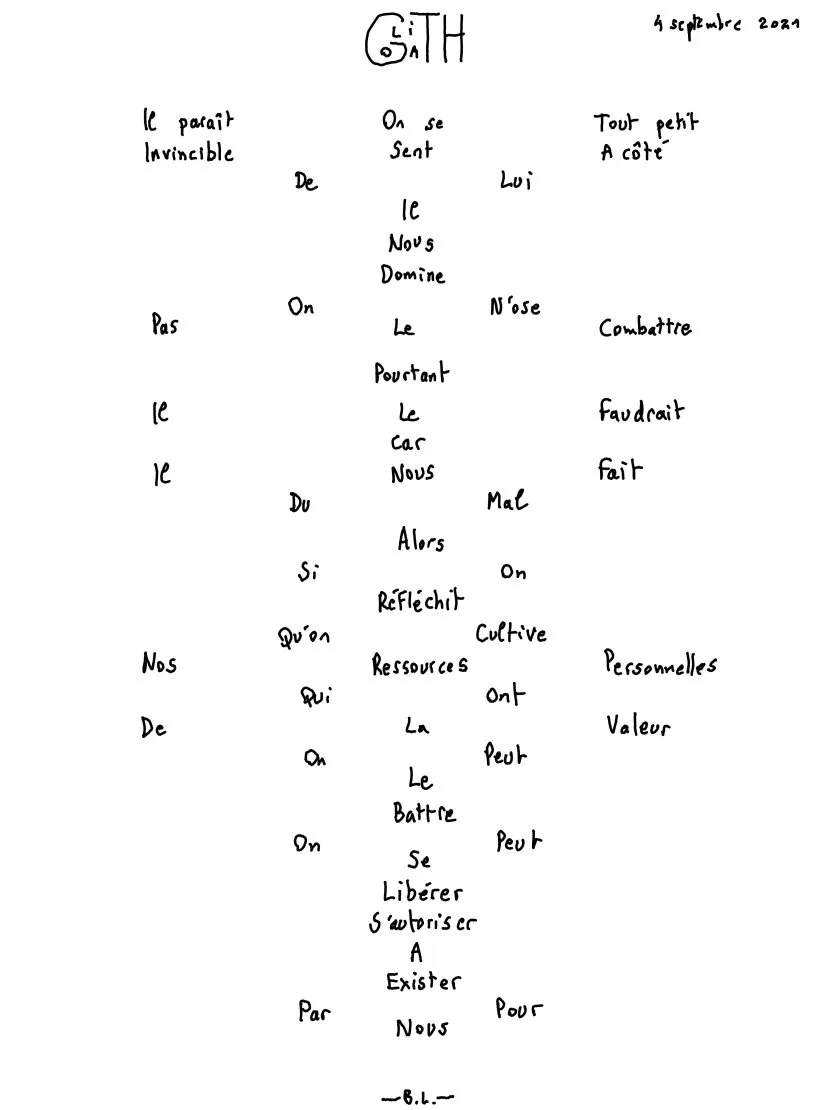 GOLiATH
4 septembre 2021
Il paraît On se Tout petit
Invincible Sent A côté
De Lui
Il
Nous
Domine
On N'ose
Pas Le Combattre
Pourtant
Il Le Faudrait
Car
Il Nous Fait
Du Mal
Alors
Si On
Réfléchit
Qu'on Cultive
Nos Ressources Personnelles
Qui Ont
De La Valeur
On Peut
Le
Battre
On Peut
Se
Libérer
S'autoriser
A
Exister
Par Pour
Nous
—B.L.—